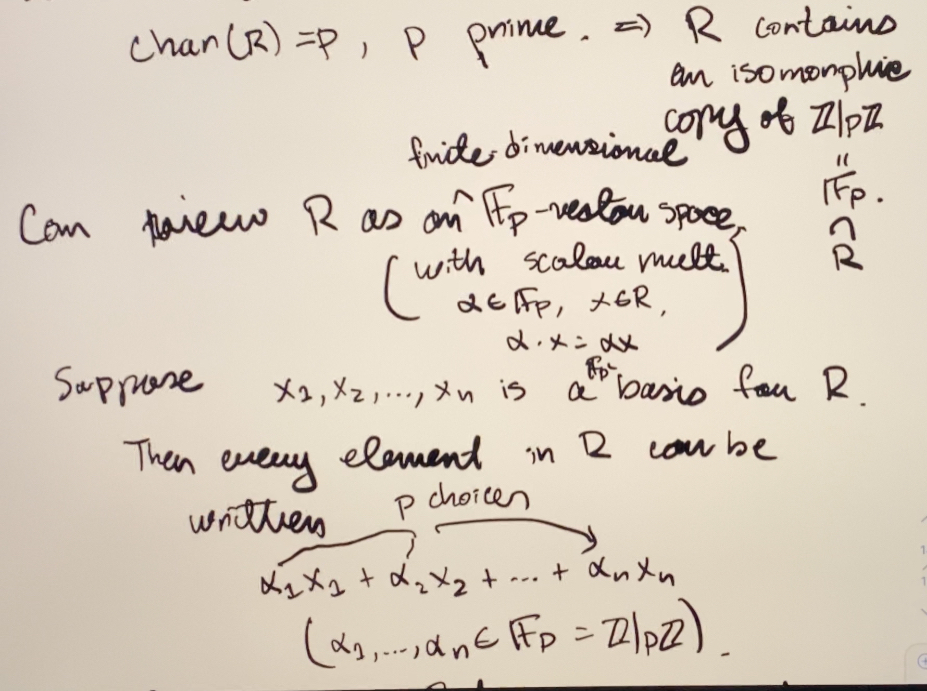 char(R) = p, p prime. ⇒ R contains
an isomorphic
copy of ℤ/pℤ
finite-dimensional
"
𝔽p.
Can view R as an ^ 𝔽p-vector space,
∩
R
(with scalar mult.
α ∈ 𝔽p, x ∈ R,
α · x = αx)
Suppose x1, x2, ..., xn is a 𝔽p- basis for R.
Then every element in R can be
written
p choices
α1x1 + α2x2 + ... + αnxn
(α1, ..., αn ∈ 𝔽p = ℤ/pℤ).